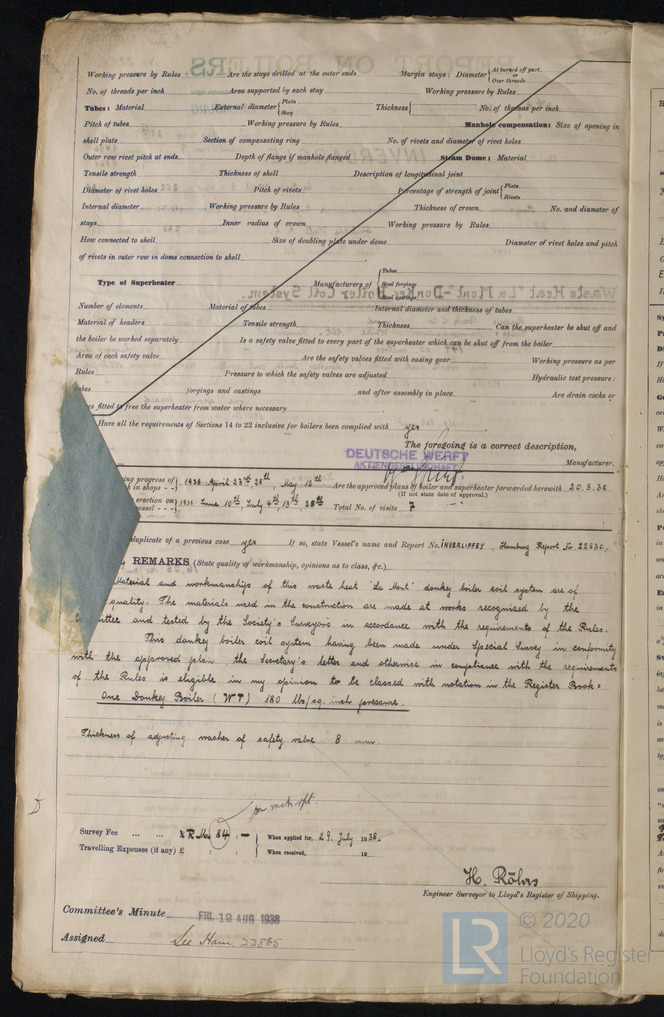 Working pressure by Rules Are the stays drilled at the outer ends Margin stays: Diameter { At turned off part. or Over threads
No. of threads per inch Area supported by each stay Working pressure by Rules
Tubes: Material External diameter { Plain Stay Thickness { No. of threads per inch
Pitch of tubes Working pressure by Rules Manhole compensation: Size of opening in
shell plate Section of compensating ring No. of rivets and diameter of rivet holes
Outer row rivet pitch at ends Depth of flange if manhole flanged Steam Dome: Material
Tensile strength Thickness of shell Description of longitudinal joint
Diameter of rivet holes Pitch of rivets Percentage of strength of joint { Plate Rivets
Internal diameter Working pressure by Rules Thickness of crown No. and diameter of
stays Inner radius of crown Working pressure by Rules
How connected to shell Size of doubling plate under dome Diameter of rivet holes and pitch
of rivets in outer row in dome connection to shell
Type of Superheater Manufacturers of { Tubes Steel forgings Steel castings
Number of elements Material of tubes Internal diameter and thickness of tubes
Material of headers Tensile strength Thickness Can the superheater be shut off and
the boiler be worked separately Is a safety valve fitted to every part of the superheater which can be shut off from the boiler
Area of each safety valve Are the safety valves fitted with easing gear Working pressure as per
Rules Pressure to which the safety valves are adjusted Hydraulic test pressure:
forgings and castings and after assembly in place Are drain cocks or
fitted to free the superheater from water where necessary
Have all the requirements of Sections 14 to 22 inclusive for boilers been complied with yes
The foregoing is a correct description,
DEUTSCHE WERFT
AKTIENGESELLSCHAFT Manufacturer.
progress of in shops - - 1938 April 23rd 28th, May 12th Are the approved plans of boiler and superheater forwarded herewith 20.5.38
(If not state date of approval.)
erection on - - 1938 June 10th July 4th 13th 28th Total No. of visits 7
duplicate of a previous case yes If so, state Vessel's name and Report No. INVERLIFFEY, Hamburg Report No. 22630.
REMARKS (State quality of workmanship, opinions as to class, &c.)
Material and workmanship of this waste heat "La Mont" donkey boiler coil system are of
quality. The materials used in the construction are made at works recognized by the
and tested by the Society's Surveyors in accordance with the requirements of the Rules.
This donkey boiler coil system having been made under Special Survey in conformity
with the approved plan the Secretary's letter and otherwise in compliance with the requirements
of the Rules is eligible in my opinion to be classed with notation in the Register Book:
One Donkey Boiler (WT) 180 lbs/sq. inch pressure.
Thickness of adjusting washer of safety valve 8 mm.
Survey Fee ... ... RM. 84 : - When applied for, 29. July 1938.
Travelling Expenses (if any) £ : : When received, 19
H. Röhrs
Engineer Surveyor to Lloyd's Register of Shipping.
Committee's Minute FRI. 12 AUG 1938
Assigned See Ham. 22865
© 2020
LR Lloyd's Register
Foundation